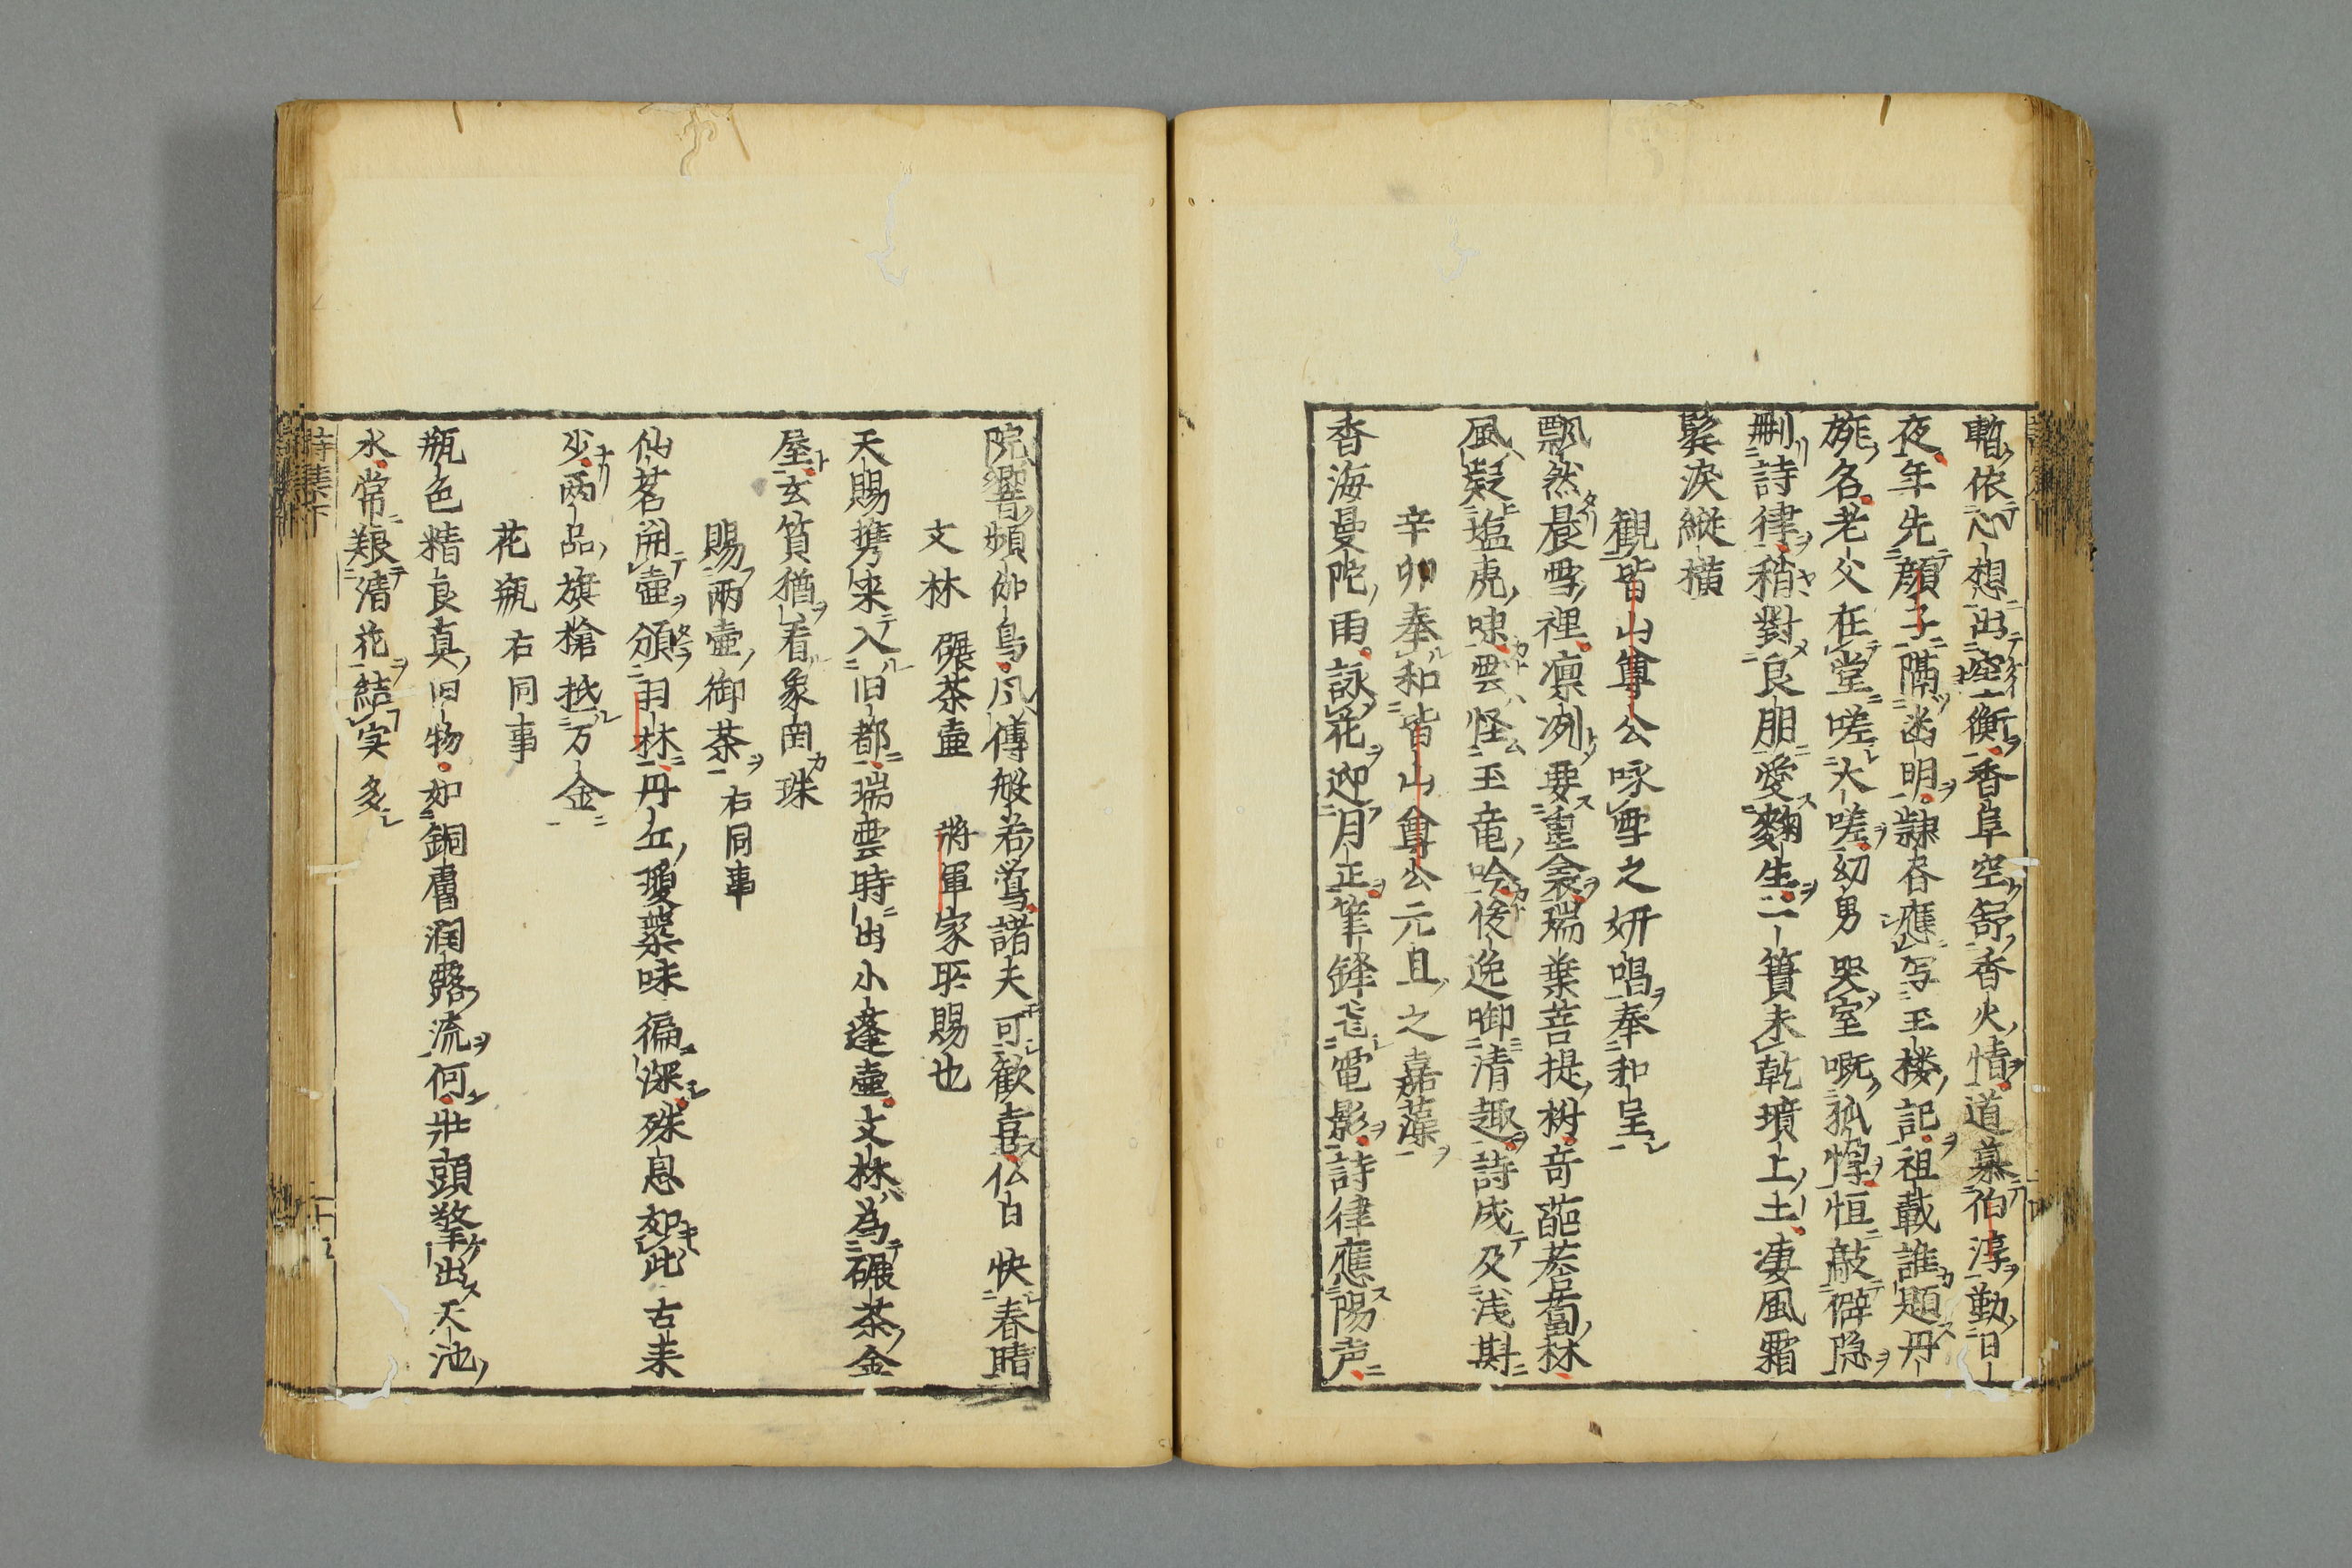 暫依心想出空衡香阜空舒香火情道慕伯淳勤日
夜年先顔子隔幽明隷春應写玉楼記祖載誰題丹
旐名老父在堂嗟大嗟幼男哭室嘅孤惸恒敲僻隠
刪詩律稍對良朋愛麹生一簣未乾墳上土凄風霜
鬂涙縦横
観皆山尊公咏雪之妍唱奉和呈
飄然晨雪裡凛冽要重衾瑞葉菩提樹奇葩薝蔔林
風疑塩虎唻雲怪玉竜吟俊逸御清趣詩成及浅斟
辛卯奉和皆山尊公元旦之嘉藻
香海曼陀雨詠花迎月正筆鋒飛電影詩律應陽声
院響頻伽鳥風傳般若鴬諸夫可歓喜仏日快春晴
文林　碾茶壷　将軍家所賜也
天賜携来入旧都瑞雲時出小蓬壷文林為碾茶金
屋玄質猶看象罔珠
賜両壷御茶　右同事
仙茗開壷頒羽林丹丘瓊蘂味偏深殊恩如此古来
少両品旗槍抵万金
花瓶　右同事
瓶色精良真旧物如銅膚潤露流何壮頭擎出天池
水常艱清花結実多
詩集下